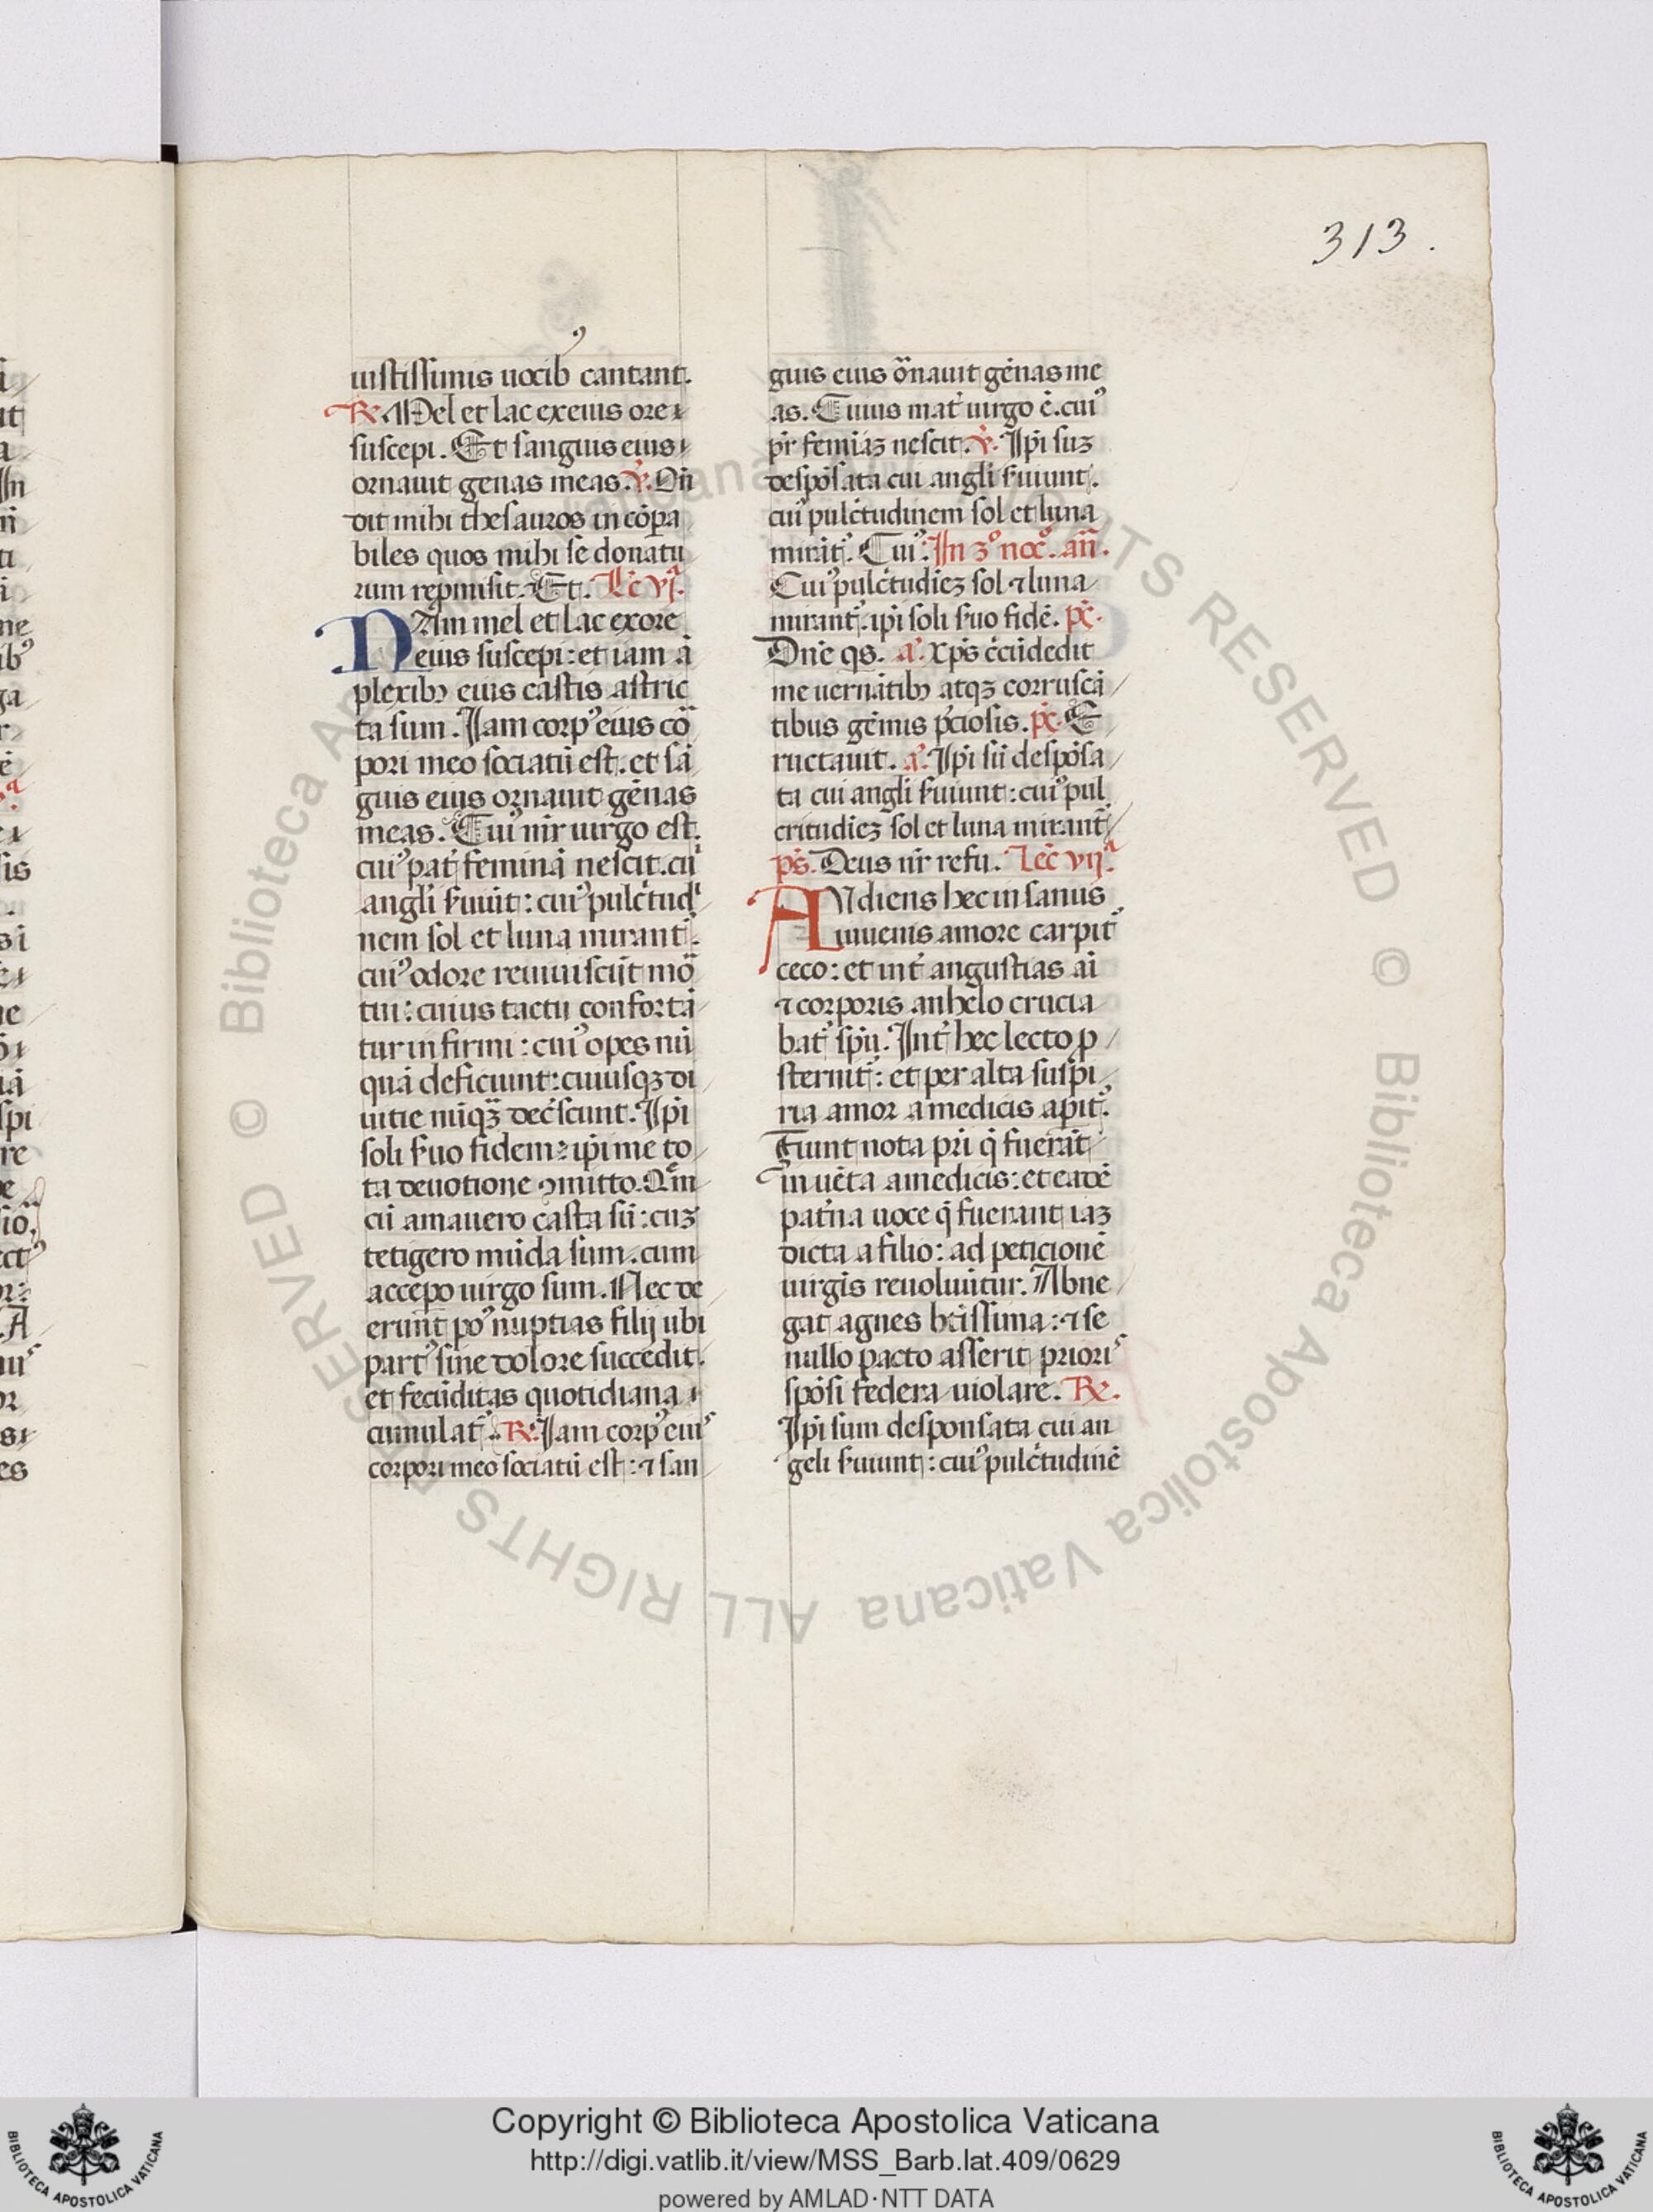 313.
iustissimis uocibꝰ cantant.
℟. Mel et lac ex eius ore
suscepi. Et sanguis eius
ornauit genas meas. ℣. Oñ
dit mihi thesauros incōpa
biles quos mihi se donatu
rum repmisit. Et. Lc̄ vjᵃ.
NAm mel et lac ex ore
eius suscepi: et iam ā
plexibꝫ eius castis astric
ta sum. Iam corpꝰ eius co
pori meo sociatū est. et sā
guis eius ornauit genas
meas. Cuiꝰ mr̄ uirgo est.
cuiꝰ pat̄ feminā nescit. cui
angli s̄uiūt: cuiꝰ pulc̄tudi
nem sol et luna mirant̄.
cuiꝰ odore reuiuiscūt mo
tui: cuius tactu confortā
tur infirmi: cuiꝰ opes nū
quā deficiunt: cuiusqꝫ di
uitie nūqꝫ dec̄scunt. Ip̄i
soli s̄uo fidem: ip̄i me to
ta deuotione ꝯmitto. Qm̄
cū amauero casta sū: cuꝫ
tetigero mūda sum. cum
accepo uirgo sum. Nec de
erunt poꝰ nuptias filij ubi
partꝰ sine dolore succedit.
et fecūditas quotidiana
cumulat̄. ℟. Iam corpꝰ eiuˢ
corpori meo sociatū est: ⁊ san
guis eius o᷒nauit genas me
as. Cuius mat̄ uirgo ē. cuiꝰ
pr̄ femiaꝫ nescit. ℣. Ip̄i suꝫ
despōsata cui angli s̄uiunt.
cuiꝰ pulc̄tudinem sol et luna
mirāt̄. Cuiꝰ. In 3º noc̄º. an̄.
Cuiꝰ pulc̄tudieꝫ sol ⁊ luna
mirant̄. ip̄i soli s̄uo fidē. pc̄.
Dn̄e qs. a᷒. Xps̄ c̄cūdedit
me uernātibꝫ atqꝫ corruscā
tibus gēmis p̄ciosis. pc̄. E
ructauit. a᷒. Ip̄i sū despōsa
ta cui angli s̄uiunt: cuiꝰ pul
critudieꝫ sol et luna mirant̄
ps̄. Deus nr̄ refu. Lec̄ vijᵃ.
AVdiens hec insanus
iuuenis amore carpit̄
ceco: et int̄ angustias ai
⁊ corporis anhelo crucia
bat̄ spū. Int̄ hec lecto p
sternit̄: et per alta suspi
ria amor a medicis apit̄.
Fiunt nota pri q̄ fuerāt
inuēta a medicis: et eadē
pat̄na uoce q̄ fuerant iaꝫ
dicta a filio: ad peticionē
uirgis reuoluūtur. Abne
gat agnes btissima: ⁊ se
nullo pacto asserit prioriˢ
spōsi federa uiolare. ℟.
Ip̄i sum desponsata cui an
geli s̄uiunt: cuiꝰ pulc̄tudinē
© Biblioteca Apostolica Vaticana ALL RIGHTS RESERVED © Biblioteca Apostolica Vaticana ALL RIGHTS RESERVED
Copyright © Biblioteca Apostolica Vaticana
http://digi.vatlib.it/view/MSS_Barb.lat.409/0629
powered by AMLAD·NTT DATA
BIBLIOTECA APOSTOLICA VATICANA
BIBLIOTECA APOSTOLICA VATICANA